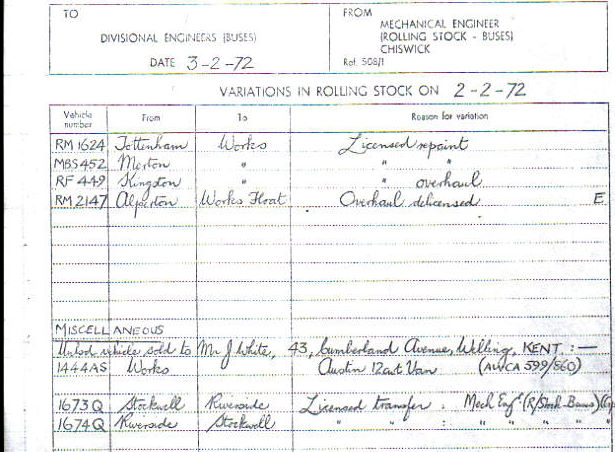 TO
DIVISIONAL ENGINEERS (BUSES)
DATE 3-2-72
FROM
MECHANICAL ENGINEER
(ROLLING STOCK - BUSES)
CHISWICK
Ref. 508/1
VARIATIONS IN ROLLING STOCK ON 2-2-72
Vehicle number From To Reason for variation
RM 1624 Tottenham Works Licensed repaint
MBS 452 Merton " " "
RF 449 Kingston " " overhaul
RM 2147 Alperton Works Float Overhaul delicensed E
MISCELLANEOUS
vehicle sold to Mr J White, 43, Cumberland Avenue, Welling, KENT :—
1444AS Works Austin 12cwt Van (AWCA 599/860)
1673Q Stockwell Riverside Licensed transfer : Mech Engr (R/Stock Buses)
1674Q Riverside Stockwell " " : " " " "